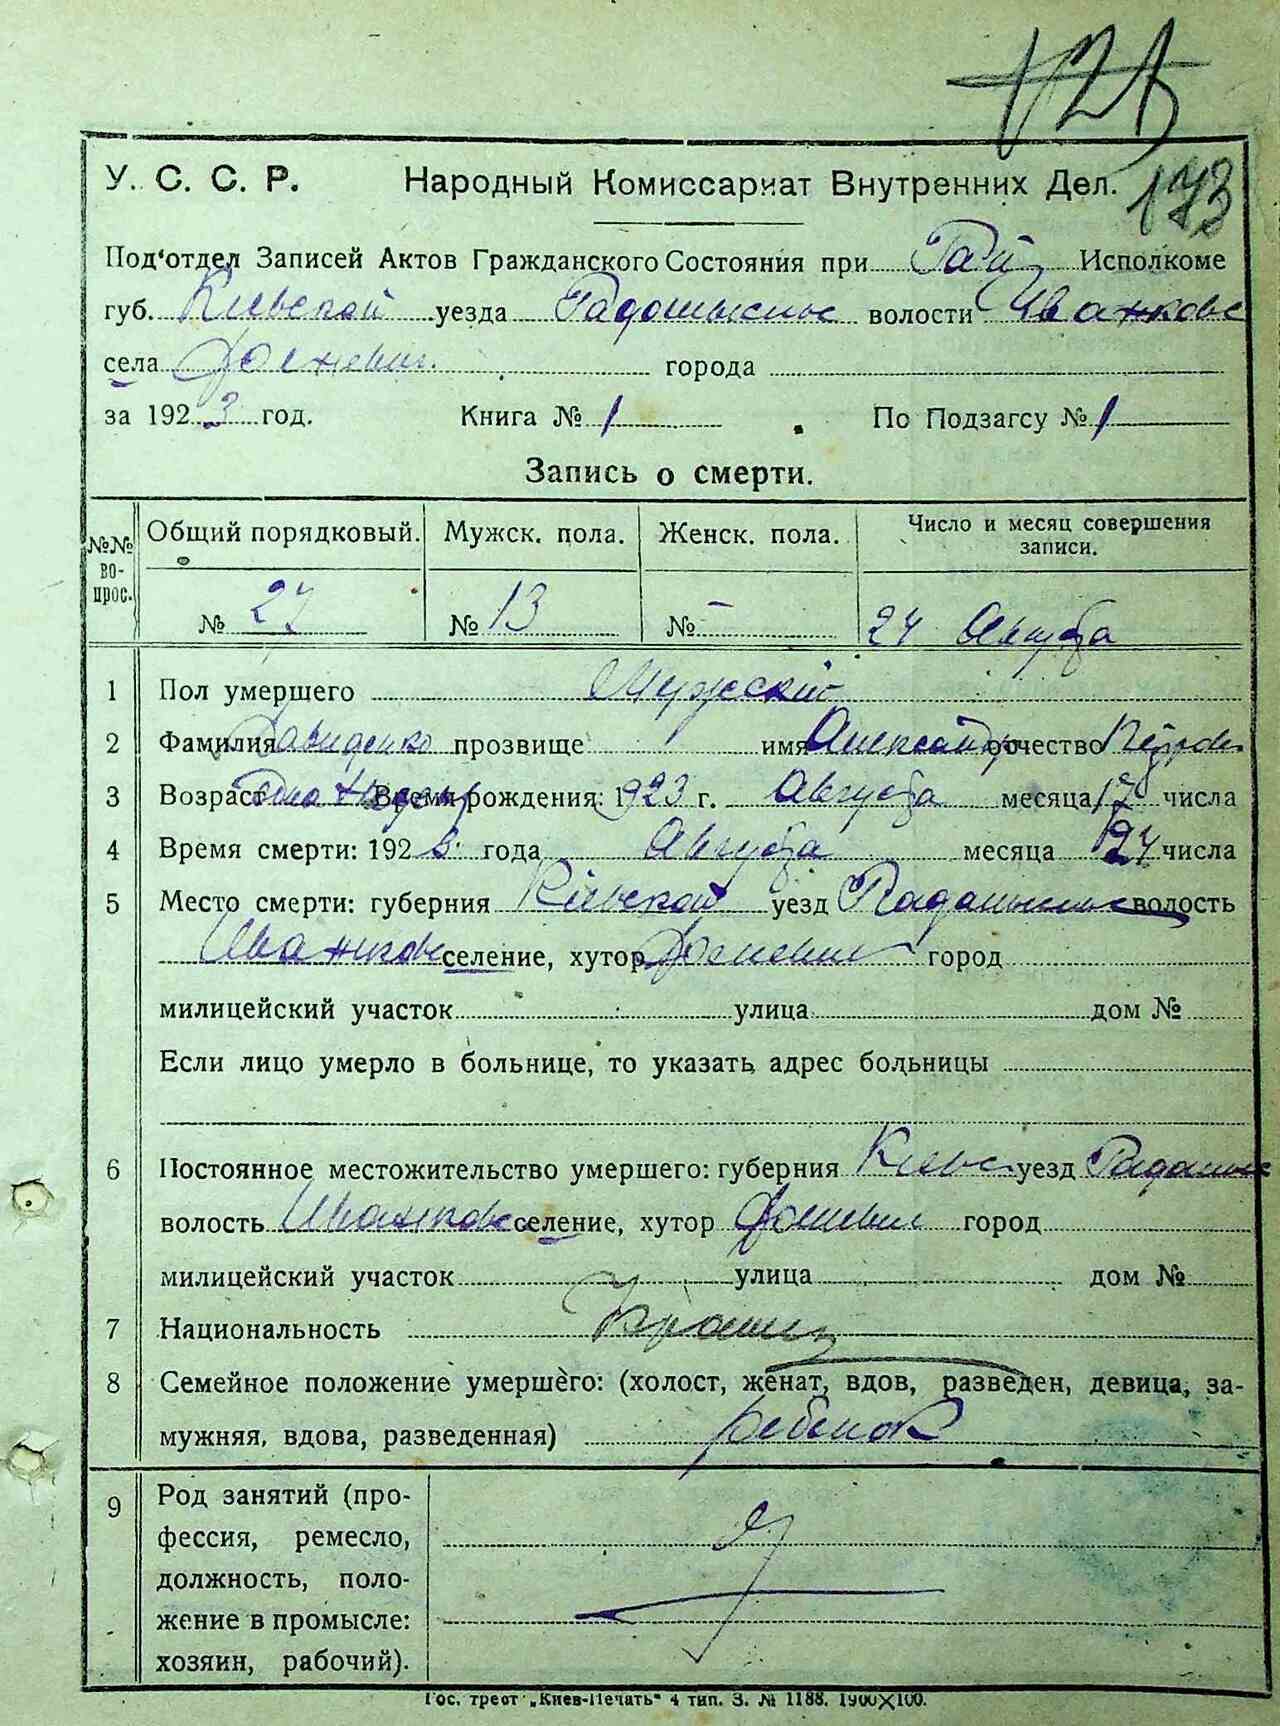 173
У. С. С. Р. Народный Комиссариат Внутренних Дел.
Под‘отдел Записей Актов Гражданского Состояния при Рай Исполкоме
губ. Киевской уезда волости Иванковс
села города
за 1923 год. Книга № 1 По Подзагсу № 1
Запись о смерти.
№№ во- прос. Общий порядковый. Мужск. пола. Женск. пола. Число и месяц совершения записи.
№ 27 № 13 № - 24 Августа
1 Пол умершего Мужский
2 Фамилия Давиденко прозвище имя Александр отчество
3 Возраст Время рождения: 1923 г. Августа месяца 17 числа
4 Время смерти: 1923 года Августа месяца 24 числа
5 Место смерти: губерния Киевской уезд волость
Иванковс селение, хутор город
милицейский участок улица дом №
Если лицо умерло в больнице, то указать адрес больницы
6 Постоянное местожительство умершего: губерния Киевс уезд
волость Иванковс селение, хутор город
милицейский участок улица дом №
7 Национальность
8 Семейное положение умершего: (холост, женат, вдов, разведен, девица, за-
мужняя, вдова, разведенная) ребенок
9 Род занятий (про-
фессия, ремесло,
должность, поло-
жение в промысле:
хозяин, рабочий).
Гос. трест „Киев-Печать“ 4 тип. З. № 1188. 1900×100.